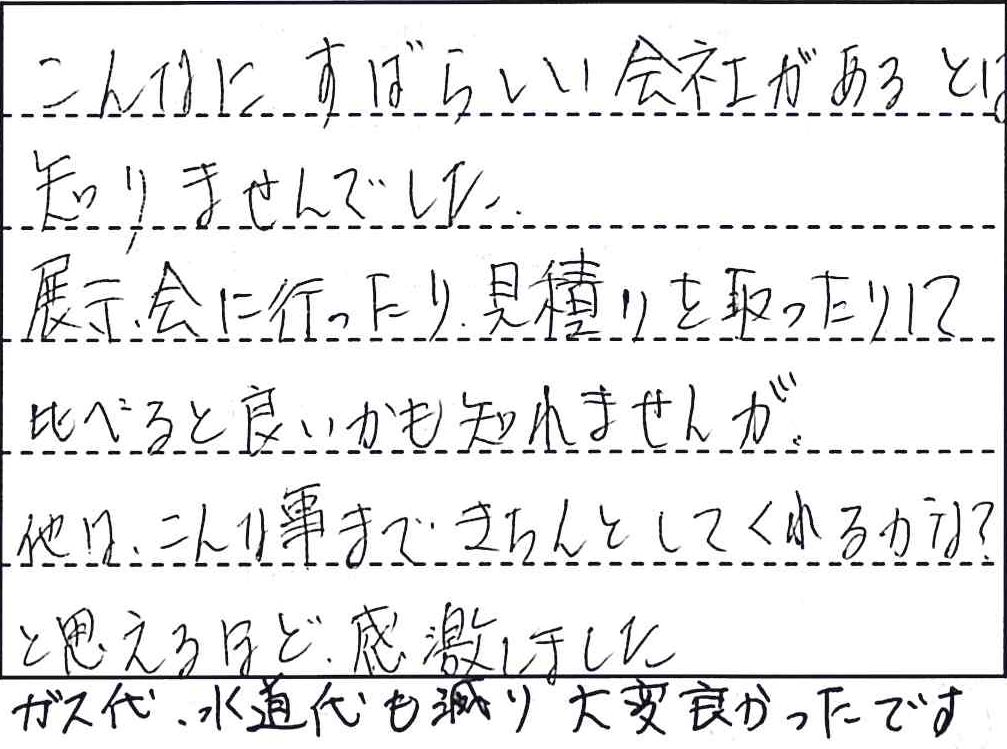 こんなにすばらしい会社があるとは
知りませんでした.
展示会に行ったり、見積りを取ったりして
比べると良いかも知れませんが、
他は、こんな事まで、きちんとしてくれるかな?
と思えるほど、感激しました
ガス代、水道代も減り 大変良かったです